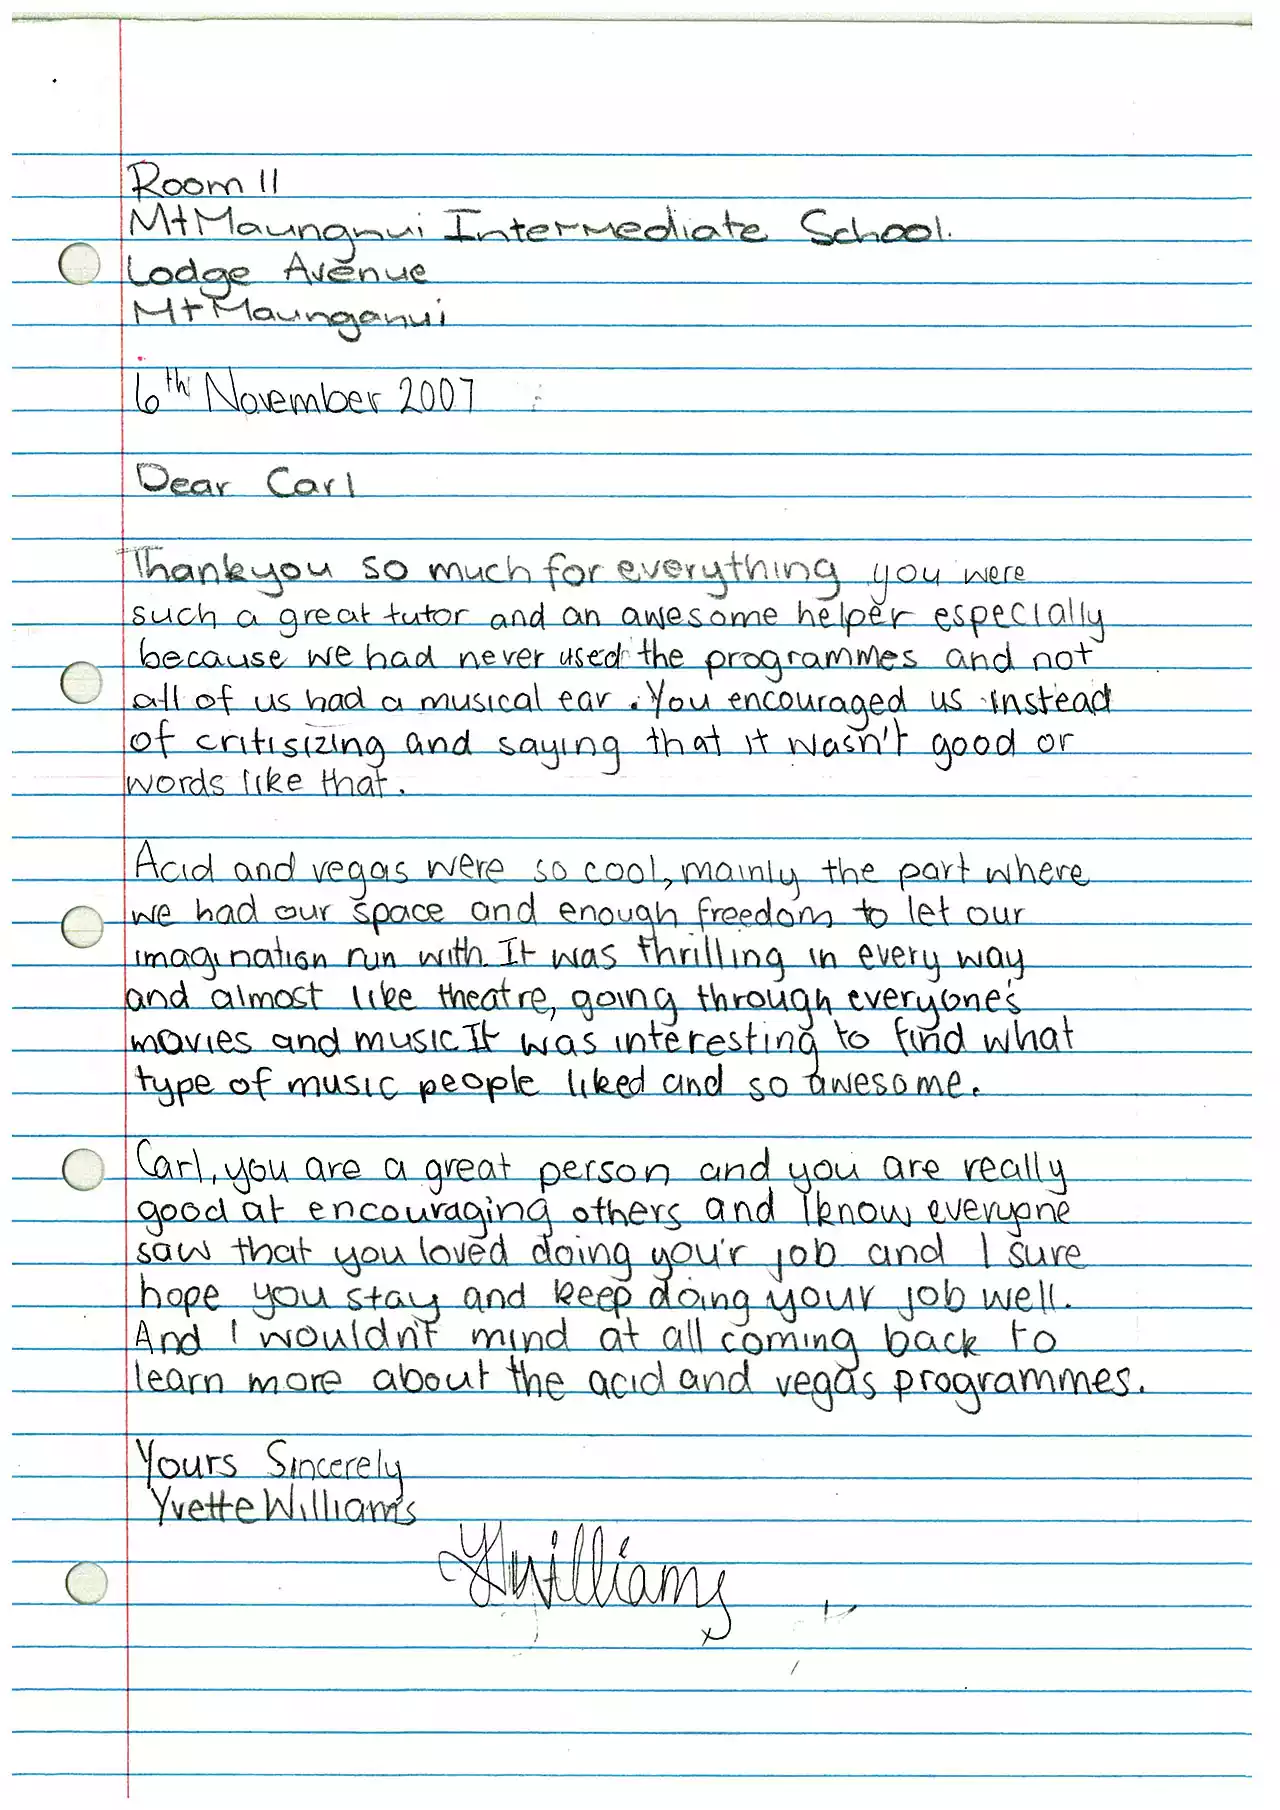 Room 11
Mt Maungnui Intermediate School.
Lodge Avenue
Mt Maunganui
6th November 2007
Dear Carl
Thankyou so much for everything you were
such a great tutor and an awesome helper especially
because we had never used the programmes and not
all of us had a musical ear. You encouraged us instead
of critisizing and saying that it wasn't good or
words like that.
Acid and vegas were so cool, mainly the part where
we had our space and enough freedom to let our
imagination run with. It was thrilling in every way
and almost like theatre, going through everyone's
movies and music It was interesting to find what
type of music people liked and so awesome.
Carl, you are a great person and you are really
good at encouraging others and I know everyone
saw that you loved doing you'r job and I sure
hope you stay and keep doing your job well.
And I wouldn't mind at all coming back to
learn more about the acid and vegas programmes.
Yours Sincerely
Yvette Williams
YWilliams